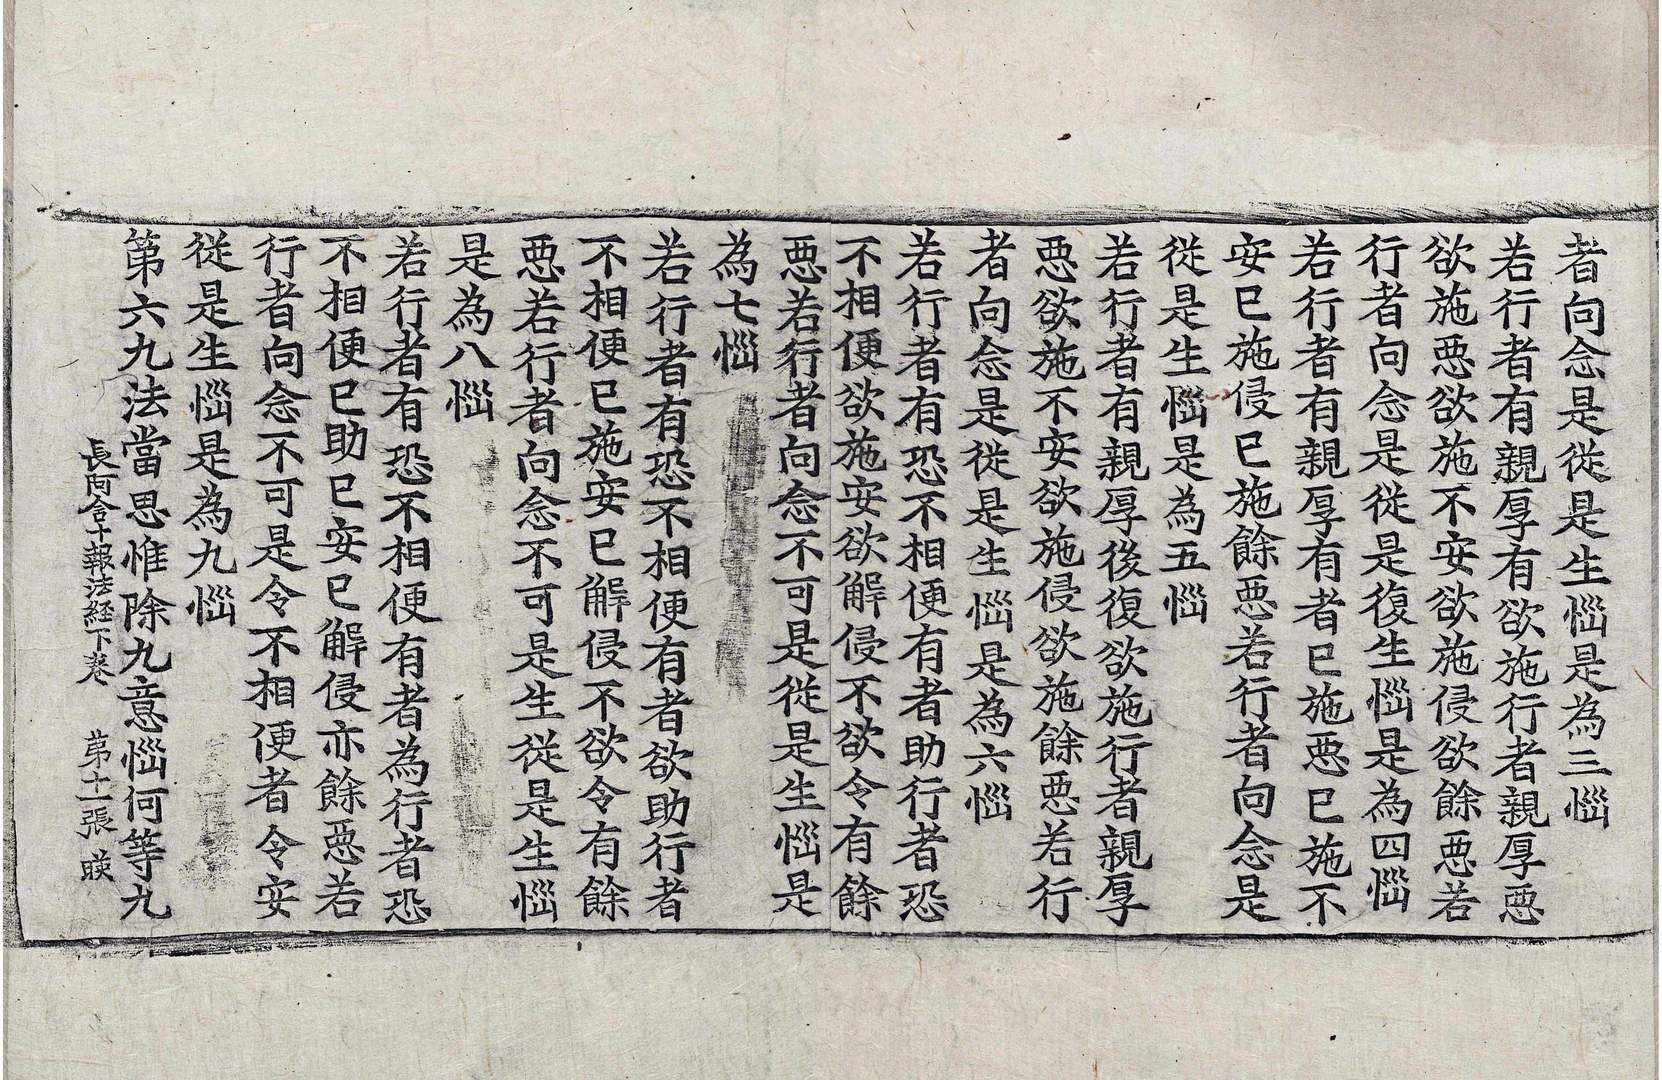 者向念是從是生惱是為三惱
若行者有親厚有欲施行者親厚惡
欲施惡欲施不安欲施侵欲餘惡若
行者向念是從是復生惱是為四惱
若行者有親厚有者已施惡已施不
安已施侵已施餘惡若行者向念是
從是生惱是為五惱
若行者有親厚後復欲施行者親厚
惡欲施不安欲施侵欲施餘惡若行
者向念是從是生惱是為六惱
若行者有恐不相便有者助行者恐
不相便欲施安欲解侵不欲令有餘
惡若行者向念不可是從是生惱是
為七惱
若行者有恐不相便有者欲助行者
不相便已施安已解侵不欲令有餘
惡若行者向念不可是生從是生惱
是為八惱
若行者有恐不相便有者為行者恐
不相便已助已安已解侵亦餘惡若
行者向念不可是令不相便者令安
從是生惱是為九惱
第六九法當思惟除九意惱何等九
長阿含十報法經下卷　第十一張　暎